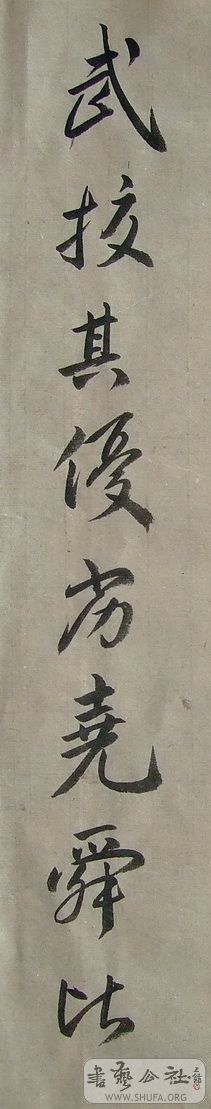 武挍其優劣堯舜比
書藝公社
WWW.SHUFA.ORG